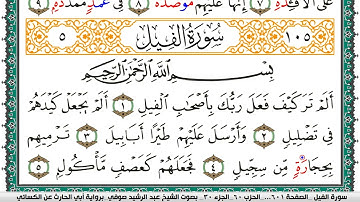 عَلَى ٱلْأَفْـِٔدَةِ ٧ إِنَّهَا عَلَيْهِم مُّوصَدَةٌ ٨ فِي عَمَدٍ مُّمَدَّدَةٍ ٩
١٠٥ سُورَةُ الفِيلِ ٥
بِسْمِ ٱللَّهِ ٱلرَّحْمَٰنِ ٱلرَّحِيمِ
أَلَمْ تَرَ كَيْفَ فَعَلَ رَبُّكَ بِأَصْحَٰبِ ٱلْفِيلِ ١ أَلَمْ يَجْعَلْ كَيْدَهُمْ
فِي تَضْلِيلٍ ٢ وَأَرْسَلَ عَلَيْهِمْ طَيْرًا أَبَابِيلَ ٣ تَرْمِيهِم
بِحِجَارَةٍ مِّن سِجِّيلٍ ٤ فَجَعَلَهُمْ كَعَصْفٍ مَّأْكُولٍ ٥
سورة الفيل _الصفحة ٦٠١ ... الحزب ٦٠_الجزء ٣٠_ بصوت الشيخ عبد الرشيد صوفي_برواية أبي الحارث عن الكسائي